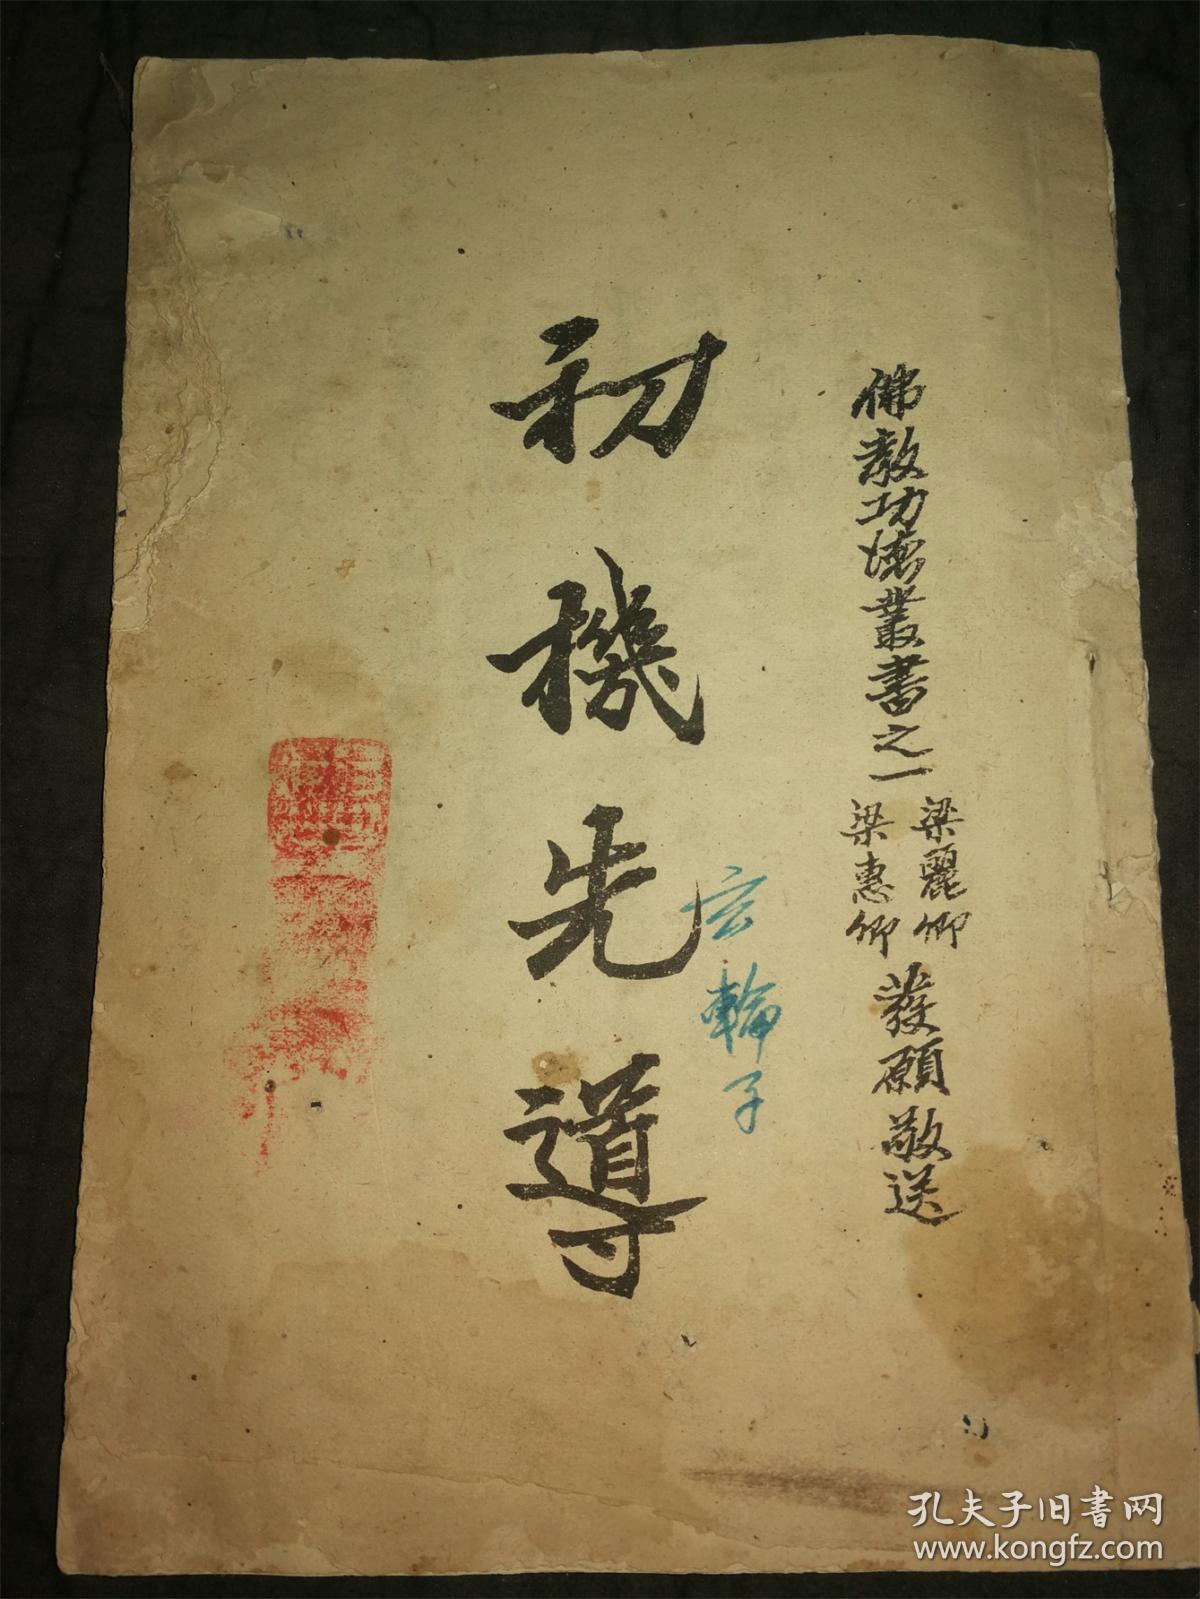 佛教功德叢書之一
梁麗卿
梁惠卿
發願敬送
初機先導
宏輪子
孔夫子旧书网
www.kongfz.com